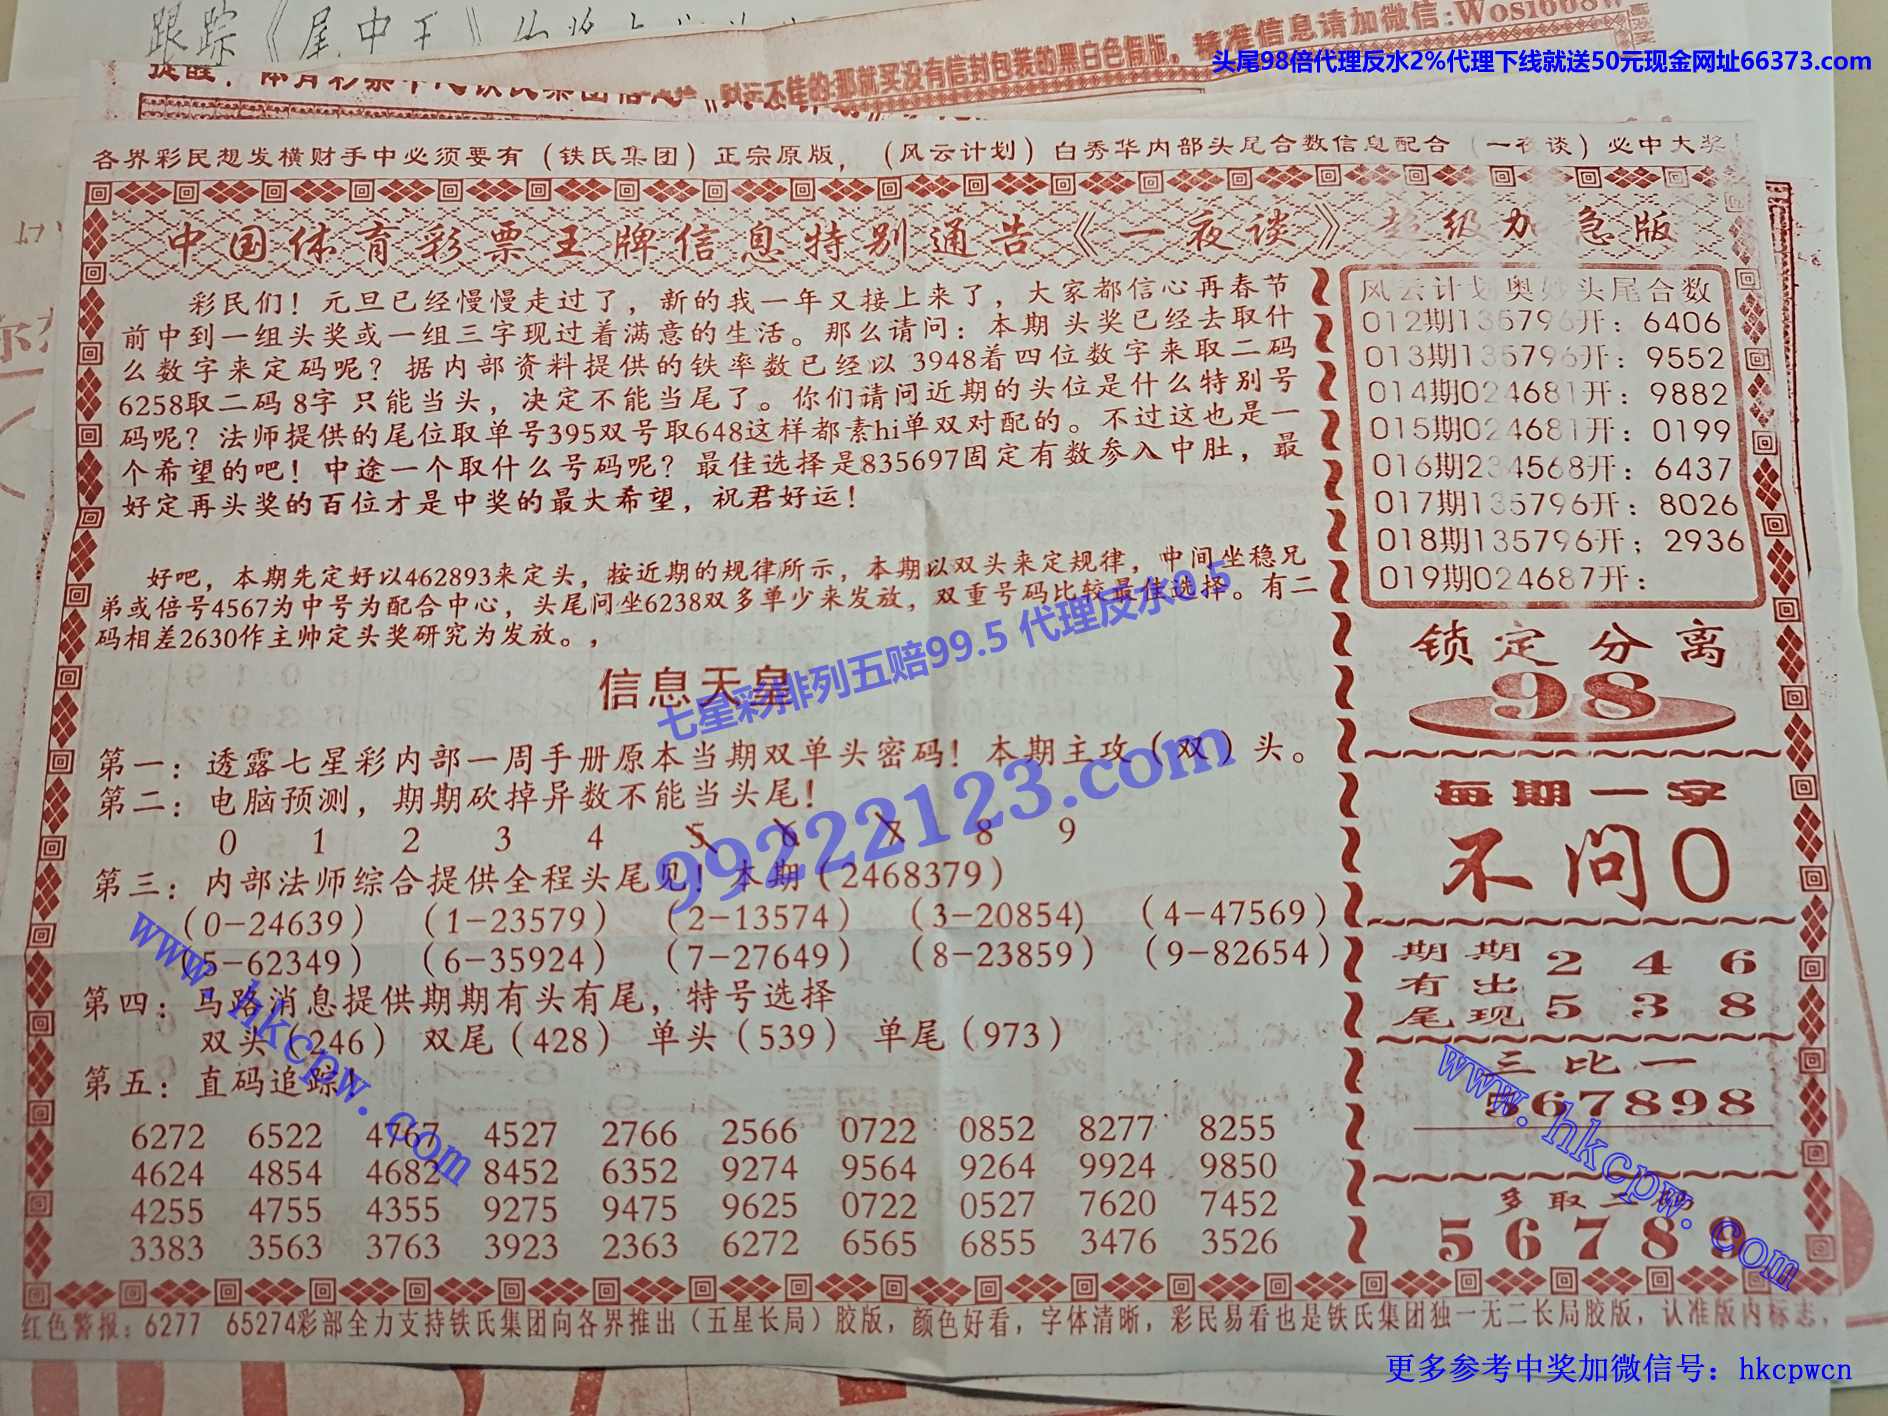 跟踪《尾中王》
精准信息请加微信:Wosi668w
财运不佳的那就买没有信封包装的黑白色假版,
头尾98倍代理反水2%代理下线就送50元现金网址66373.com
各界彩民想发横财手中必须要有(铁氏集团)正宗原版,(风云计划)白秀华内部头尾合数信息配合(一夜谈)必中大奖
中国体育彩票王牌信息特别通告《一夜谈》超级加急版
彩民们!元旦已经慢慢走过了,新的我一年又接上来了,大家都信心再春节
前中到一组头奖或一组三字现过着满意的生活。那么请问:本期 头奖已经去取什
么数字来定码呢?据内部资料提供的铁率数已经以 3948着四位数字来取二码
6258取二码 8字 只能当头,决定不能当尾了。你们请问近期的头位是什么特别号
码呢?法师提供的尾位取单号395双号取648这样都素hi单双对配的。不过这也是一
个希望的吧!中途一个取什么号码呢?最佳选择是835697固定有数参入中肚,最
好定再头奖的百位才是中奖的最大希望,祝君好运!
好吧,本期先定好以462893来定头,按近期的规律所示,本期以双头来定规律,中间坐稳兄
弟或倍号4567为中号为配合中心,头尾问坐6238双多单少来发放,双重号码比较最佳选择。有二
码相差2630作主帅定头奖研究为发放。,
信息天皇
七星彩排列五赔99.5 代理反水0.5
99222123.com
第一:透露七星彩内部一周手册原本当期双单头密码!本期主攻(双)头。
第二:电脑预测,期期砍掉异数不能当头尾!
0 1 2 3 4 5 6 7 8 9
第三:内部法师综合提供全程头尾见!本期(2468379)
(0-24639) (1-23579) (2-13574) (3-20854) (4-47569)
(5-62349) (6-35924) (7-27649) (8-23859) (9-82654)
第四:马路消息提供期期有头有尾,特号选择
双头(246) 双尾(428) 单头(539) 单尾(973)
第五:直码追踪!
6272 6522 4767 4527 2766 2566 0722 0852 8277 8255
4624 4854 4682 8452 6352 9274 9564 9264 9924 9850
4255 4755 4355 9275 9475 9625 0722 0527 7620 7452
3383 3563 3763 3923 2363 6272 6565 6855 3476 3526
www.hkcpw.com
风云计划奥妙头尾合数
012期135796开:6406
013期135796开:9552
014期024681开:9882
015期024681开:0199
016期234568开:6437
017期135796开:8026
018期135796开;2936
019期024687开:
锁定分离
98
每期一字
不问0
期期 2 4 6
有出
尾现 5 3 8
三比一
567898
www.hkcpw.com
多取二码
5 6 7 8 9
红色警报:6277 65274彩部全力支持铁氏集团向各界推出(五星长局)胶版,颜色好看,字体清晰,彩民易看也是铁氏集团独一无二长局胶版,认准版内标志,
更多参考中奖加微信号:hkcpwcn